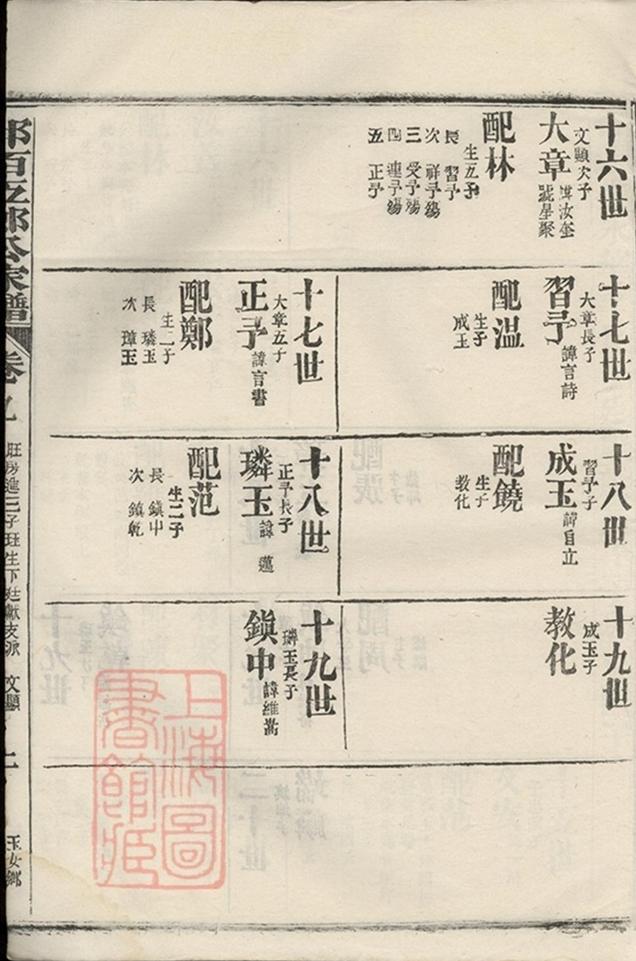 十六世
文顯次子
大章 諱汝奎
號星聚
配林
生五子
長 習予
次 祥予殤
三 受予殤
四 連予殤
五 正予
十七世
大章長子
習予 諱言詩
配溫
生子
成玉
十七世
大章五子
正予 諱言書
配鄭
生二子
長 璘玉
次 璋玉
十八世
習予子
成玉 諱自立
配饒
生子
教化
十八世
正予長子
璘玉 諱 邁
配范
生二子
長 鎮中
次 鎮乾
十九世
成玉子
教化
十九世
璘玉長子
鎮中 諱維嵩
百五郎公家譜
卷九
旺房進二子班生下廷獻支派 文顯
玉女鄉
上海圖
書館藏